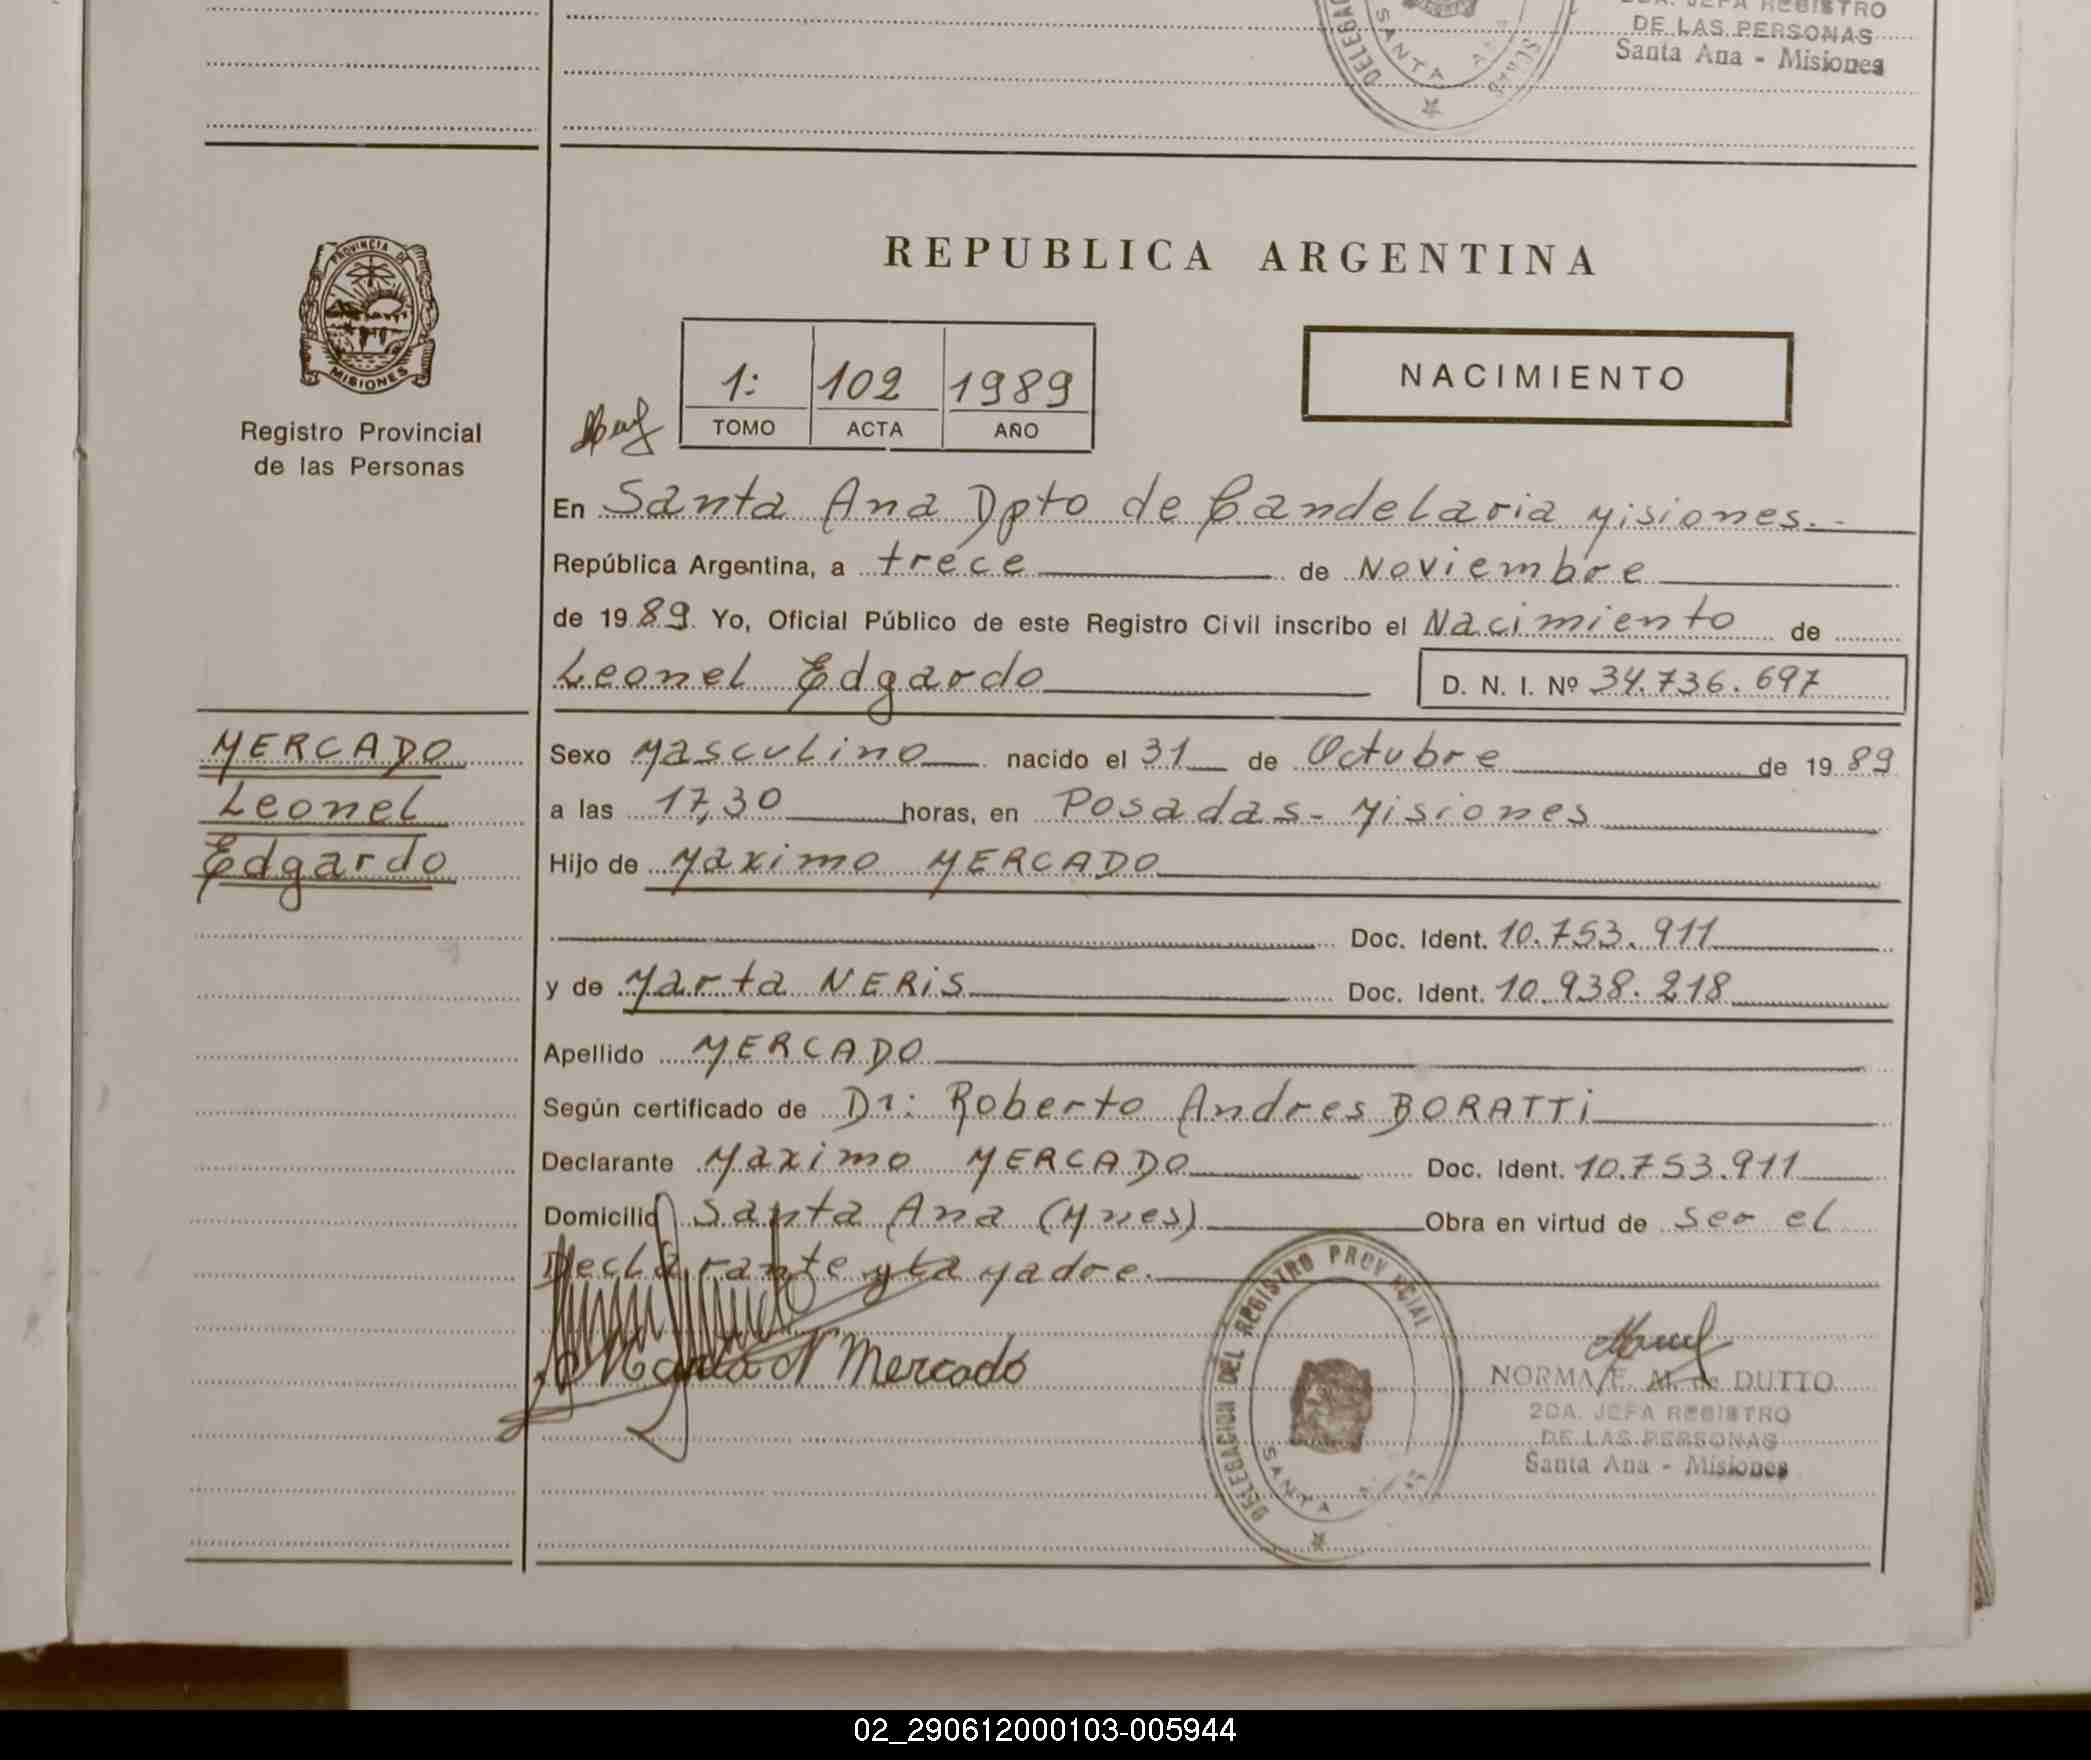 2DA. JEFA REGISTRO
DE LAS PERSONAS
Santa Ana - Misiones
DELEGA
SANTA
PROVINCIA DE
MISIONES
Registro Provincial
de las Personas
REPUBLICA ARGENTINA
1: 102 1989
TOMO ACTA AÑO
NACIMIENTO
En Santa Ana Dpto de Candelaria Misiones.-
República Argentina, a trece de Noviembre
de 1989 Yo, Oficial Público de este Registro Civil inscribo el Nacimiento de
Leonel Edgardo D. N. I. Nº 34.736.697
MERCADO
Leonel
Edgardo
Sexo Masculino nacido el 31 de Octubre de 1989
a las 17,30 horas, en Posadas - Misiones
Hijo de Maximo MERCADO
Doc. Ident. 10.753.911
y de Marta NERiS Doc. Ident. 10.938.218
Apellido MERCADO
Según certificado de Dr: Roberto Andres BORATTi
Declarante Maximo MERCADO Doc. Ident. 10.753.911
Domicilio Santa Ana (Mnes) Obra en virtud de ser el
Declarante y la Madre.
Marta N Mercado
DELEGACION DEL REGISTRO PROVINCIAL
SANTA
NORMA E. M. de DUTTO
2DA. JEFA REGISTRO
DE LAS PERSONAS
Santa Ana - Misiones
02_290612000103-005944